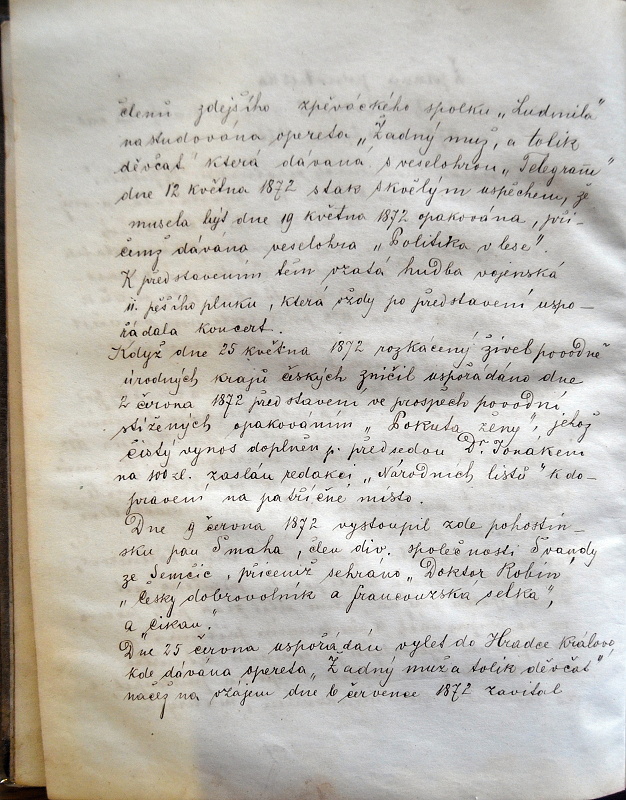 členů zdejšího zpěváckého spolku „Ludmila"
nastudována opereta „Žádný muž, a tolik
děvčat" která dávána s veselohrou „Telegram"
dne 12 května 1872 stak skvělým uspěchem, že
musela být dne 19 května 1872 opakována, při-
čemž dávána veselohra „Politika v lese".
K představením těm vzatá hudba vojenská
11. pěšího pluku, která vždy po představení uspo-
řádala koncert.
Když dne 25 května 1872 rozkacený živel povodně
úrodných krajů českých zničil uspořádáno dne
2 června 1872 představení ve prospěch povodní
stížených opakováním „Pokuta ženy", jehož
čistý vynos doplněn p. předsedou Dr. Tonákem
na 100 zl. zaslán redakci „Národních listů" k do-
pravení na patřičné místo.
Dne 9 června 1872 vystoupil zde pohostin-
sku pan Šmaha, člen div. společnosti Švandy
ze Semčic, přičemž sehráno „Doktor Robin",
„Český dobrovolník a francouzská selka",
a „Čikan".
Dne 25 června uspořádán vylet do Hradce Králové,
kde dávána opereta „Žádný muž a tolik děvčat"
načež na vzájem dne 6 července 1872 zavítal